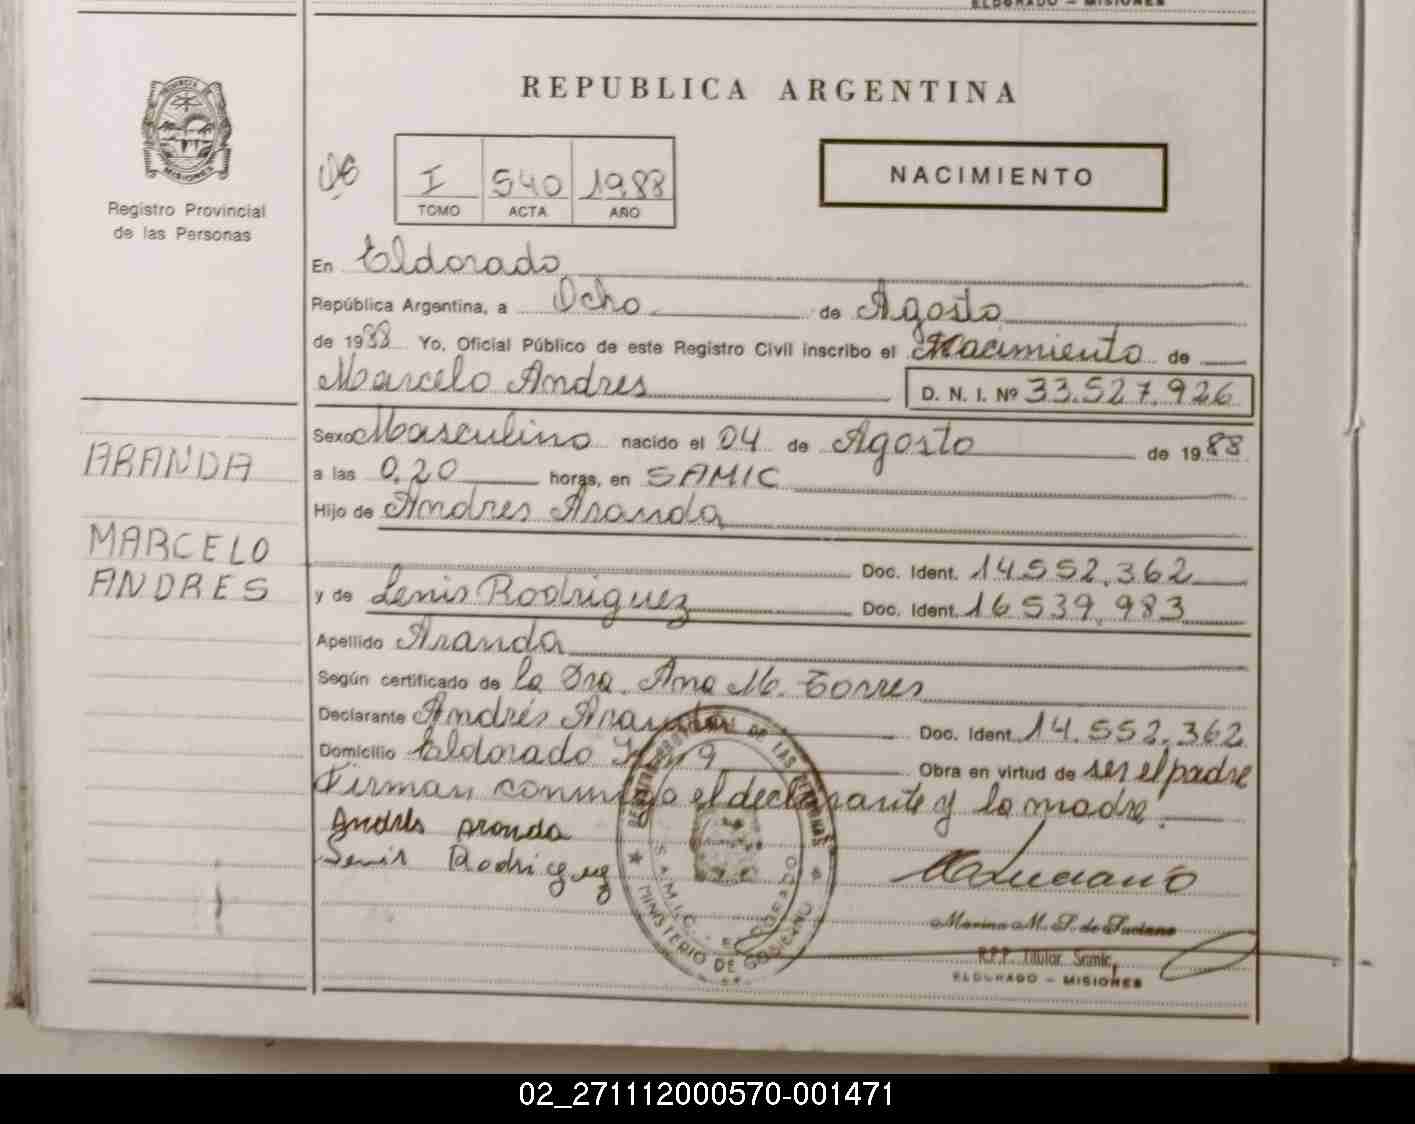 ELDORADO - MISIONES
REPUBLICA ARGENTINA
NACIMIENTO
I 540 1988
TOMO ACTA AÑO
Registro Provincial
de las Personas
En Eldorado
República Argentina, a Ocho de Agosto
de 1988 Yo, Oficial Público de este Registro Civil inscribo el Nacimiento de
Marcelo Andres D. N. I. Nº 33.527.926
Sexo Masculino nacido el 04 de Agosto de 1988
a las 0,20 horas, en SAMIC
Hijo de Andres Aranda
Doc. Ident. 14.552.362
y de Lenis Rodriguez Doc. Ident. 16.539.983
Apellido Aranda
Según certificado de la Dra. Ana M. Torres
Declarante Andrés Aranda Doc. Ident. 14.552.362
Domicilio Eldorado Km 9 Obra en virtud de ser el padre
Firman conmigo el declarante y la madre.
Andres Aranda
Lenis Rodriguez
ARANDA
MARCELO
ANDRES
DE LAS PERSONAS
S.A.M.I.C. - ELDORADO
MINISTERIO DE GOBIERNO
Luciano
Marina M. F. de Luciano
R.P.P. Titular Samic,
ELDORADO - MISIONES
02_271112000570-001471